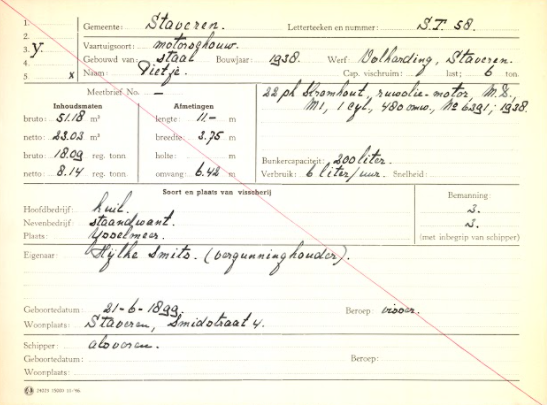 1.
2.
3. y.
4.
5. x
Gemeente: Staveren. Letterteeken en nummer: S.T. 58.
Vaartuigsoort: motorschouw.
Gebouwd van: staal Bouwjaar: 1938. Werf: Volharding, Staveren.
Naam: Pietje. Cap. vischruim: last; 6 ton.
Meetbrief No. — 22 pk Kromhout, ruwolie-motor, M.S.,
M1, 1 cyl, 480 omw., No 6391, 1938.
Inhoudsmaten Afmetingen
bruto: 51.18 m³ lengte: 11.— m
netto: 23.03 m³ breedte: 3.75 m
bruto: 18.09 reg. tonn. holte: m Bunkercapaciteit: 200 liter.
netto: 8.14 reg. tonn. omvang: 6.42 m Verbruik: 6 liter/uur. Snelheid:
Soort en plaats van visscherij Bemanning:
Hoofdbedrijf: kuil. 2.
Nevenbedrijf: staandwant. 2.
Plaats: Ysselmeer. (met inbegrip van schipper)
Eigenaar: Hijlke Smits. (vergunninghouder).
Geboortedatum: 21-6-1899. Beroep: visser.
Woonplaats: Staveren, Smidstraat 4.
Schipper: alsvoren.
Geboortedatum: Beroep:
Woonplaats: